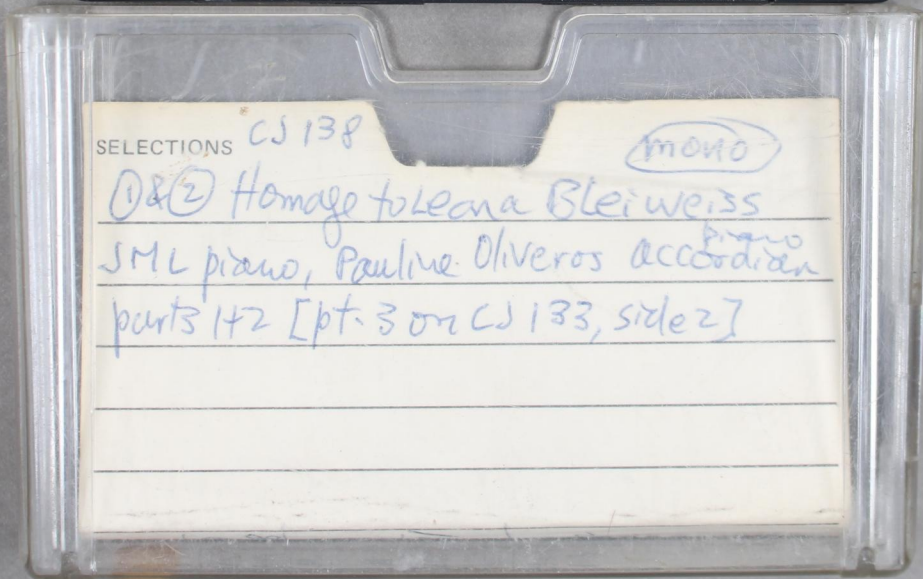 SELECTIONS CJ 138 mono
①&② Homage to Leona Bleiweiss
JML piano, Pauline Oliveros piano accordian
parts 1+2 [pt. 3 on CJ 133, side 2]